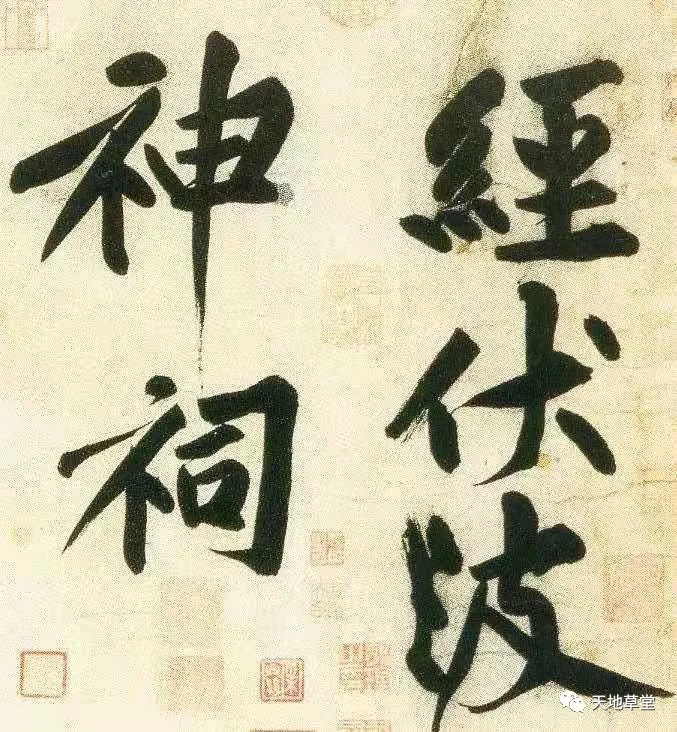 經伏波
神祠
天地草堂